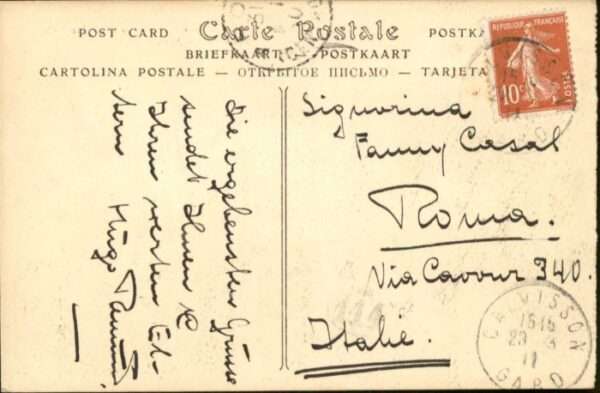 POST CARD Carte Postale POSTKA
BRIEFKAART — POSTKAART
CARTOLINA POSTALE — ОТКРЫТОЕ ПИСЬМО — TARJETA
REPUBLIQUE FRANÇAISE
10c
POSTES
Die ergebensten Grüsse
sendet Ihnen &
Ihren werten El-
tern Hugo
Signorina
Fanny Casal
Roma.
Via Cavour 340.
Italie.
CALVISSON
15 15
23 -3
11
GARD